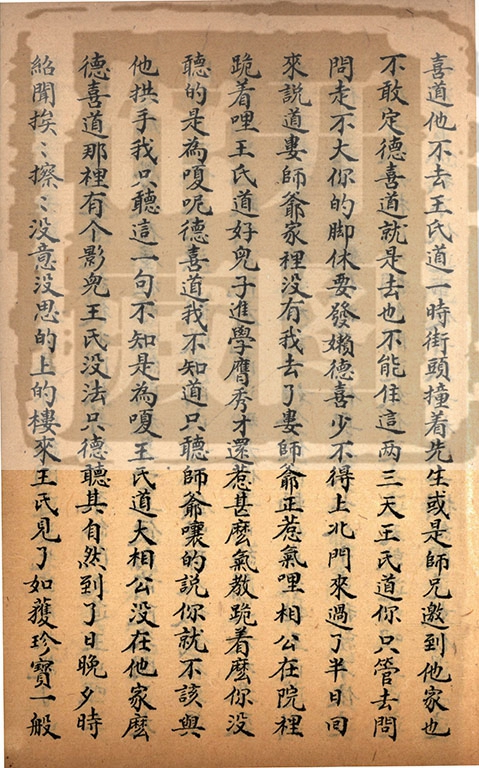 喜道他不去王氏道一時街頭撞着先生或是師兄邀到他家也
不敢定德喜道就是去也不能住這両三天王氏道你只管去問
問走不大你的脚休要發嬾德喜少不得上北門來過了半日回
來說道婁師爺家裡沒有我去了婁師爺正惹氣哩相公在院裡
跪着哩王氏道好兒子進學膺秀才還惹甚麽氣教跪着麽你没
聽的是為嗄呢德喜道我不知道只聽師爺嚷的說你就不該與
他拱手我只聽這一句不知是為嗄王氏道大相公没在他家麽
德喜道那裡有个影兒王氏没法只德聽其自然到了日晚夕時
紹聞挨〻擦〻没意没思的上的樓來王氏見了如獲珍寶一般